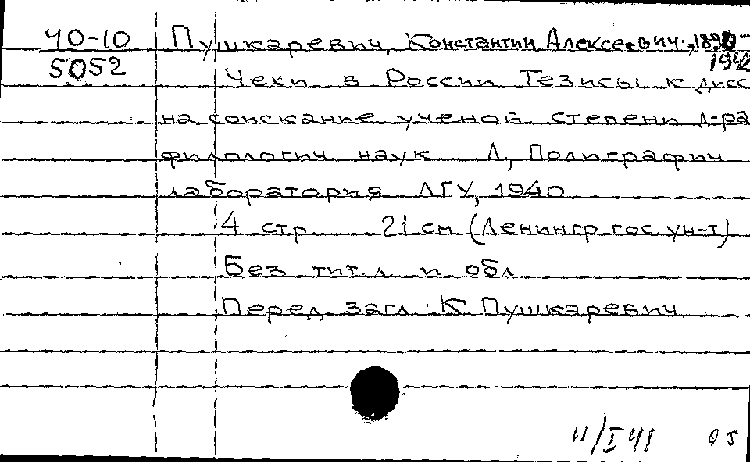 40-10 Пушкаревич, Константин Алексеевич, 1890-
5052 1942
Чехи в России Тезисы к дисс
на соискание ученой степени д-ра
филологич наук Л, Полиграфич
лаборатория ЛГУ, 1940
4 стр 21 см (Ленингр гос ун-т)
Без тит. л и обл
Перед загл К Пушкаревич
11/I 41